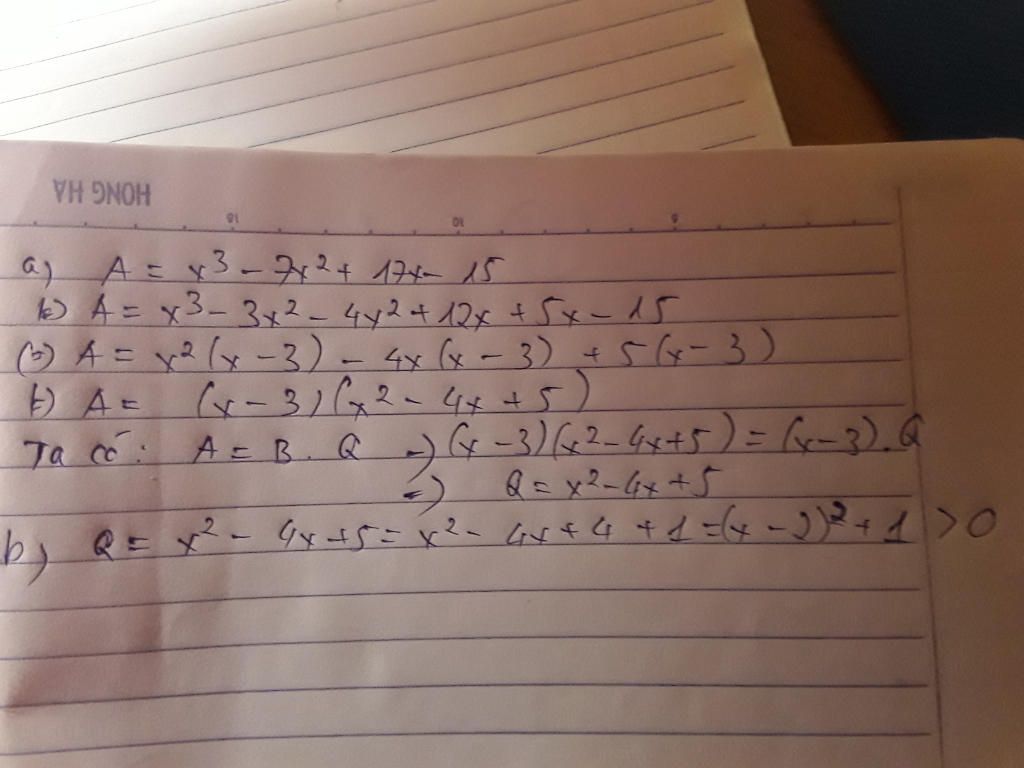 HONG HA
15 10 5
a) A = x³ - 7x² + 17x - 15
(=) A = x³ - 3x² - 4x² + 12x + 5x - 15
(=) A = x²(x - 3) - 4x(x - 3) + 5(x - 3)
(=) A = (x - 3)(x² - 4x + 5)
Ta có: A = B . Q =) (x - 3)(x² - 4x + 5) = (x - 3).Q
=) Q = x² - 4x + 5
b) Q = x² - 4x + 5 = x² - 4x + 4 + 1 = (x - 2)² + 1 > 0